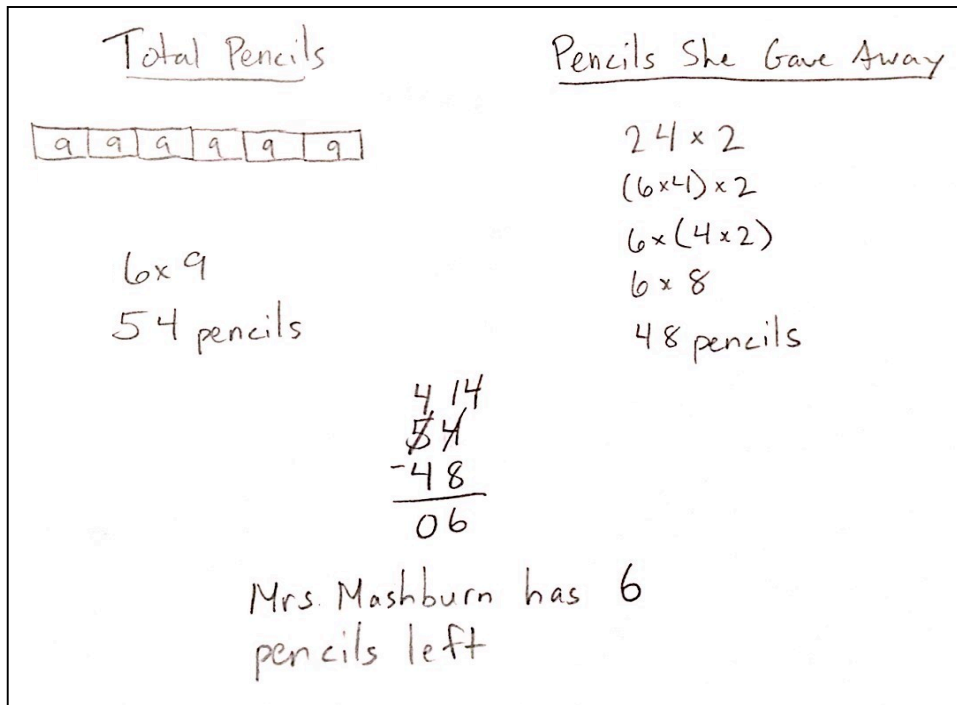 Total Pencils
9 9 9 9 9 9
6 x 9
54 pencils
Pencils She Gave Away
24 x 2
(6x4) x 2
6 x (4 x 2)
6 x 8
48 pencils
4 14
54
-48
06
Mrs. Mashburn has 6
pencils left